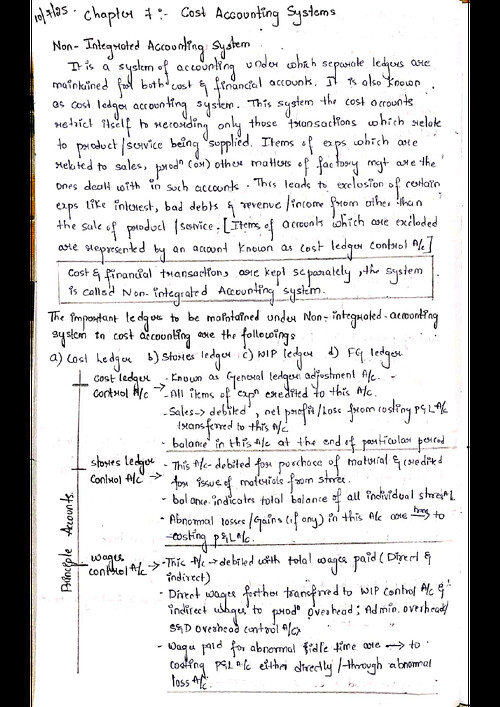 10/7/25. Chapter 7:- Cost Accounting Systems
Non-Integrated Accounting System
It is a system of accounting under which separate ledgers are
maintained for both cost & financial accounts. It is also known
as cost ledger accounting system. This system the cost accounts
retrict itself to recording only those transactions which relate
to product/service being supplied. Items of exps which are
related to sales, prodⁿ (or) other matters of factory mgt are the
ones dealt with in such accounts. This leads to exclusion of certain
exps like interest, bad debts & revenue/income from other than
the sale of product/service. [Items of accounts which are excluded
are represented by an account known as cost ledger control A/c]
cost & financial transactions are kept separately, the system
is called Non-integrated Accounting system.
The important ledgers to be maintained under Non-integrated-accounting
system in cost accounting are the followings
a) Cost Ledger b) Stores ledger c) WIP ledger d) FG ledger
cost ledger control A/c → - Known as General ledger adjustment A/c.
- All items of expⁿ credited to this A/c.
- Sales → debited, net profit/loss from costing P&L A/c
transferred to this A/c
- balance in this A/c at the end of particular period
stores ledger control A/c → - This A/c - debited for purchase of material & credited
for issue of materials from stores.
- balance indicates total balance of all individual stores
- Abnormal losses/Gains (if any) in this A/c are trans → to
costing P&L A/c.
Principle Accounts.
wages control A/c → - This A/c → debited with total wages paid (Direct &
indirect)
- Direct wages further transferred to WIP Control A/c &
indirect wages to prodⁿ overhead; Admin. overhead/
S&D overhead control A/c
- Wages paid for abnormal & idle time are → to
costing P&L A/c either directly/through abnormal
loss A/c.